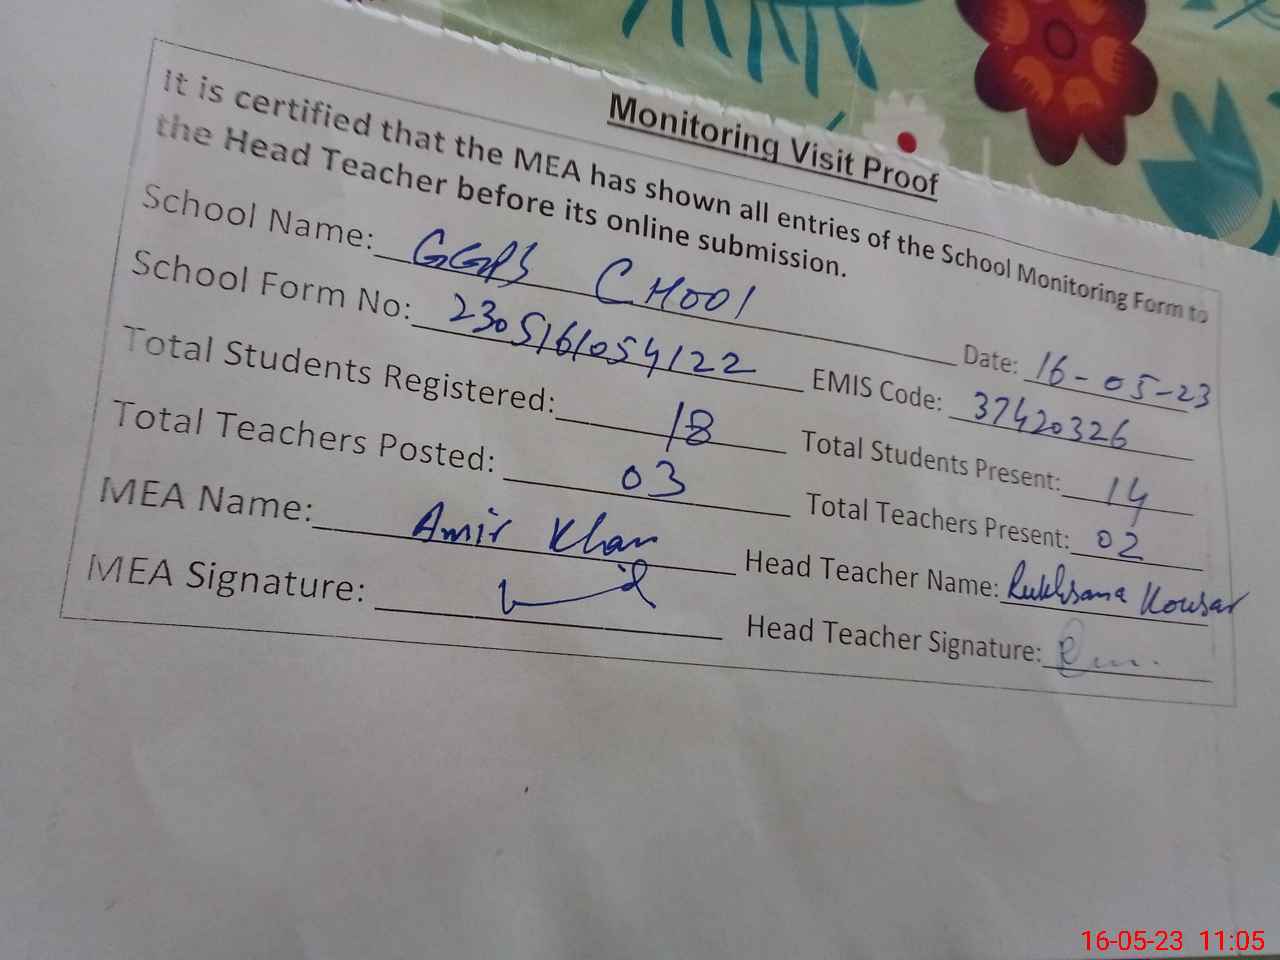 Monitoring Visit Proof
It is certified that the MEA has shown all entries of the School Monitoring Form to
the Head Teacher before its online submission.
School Name: GGPS CHOOI Date: 16-05-23
School Form No: 2305161054122 EMIS Code: 37420326
Total Students Registered: 18 Total Students Present: 14
Total Teachers Posted: 03 Total Teachers Present: 02
MEA Name: Amir Khan Head Teacher Name: Rukhsana Kousar
MEA Signature: Head Teacher Signature:
16-05-23 11:05